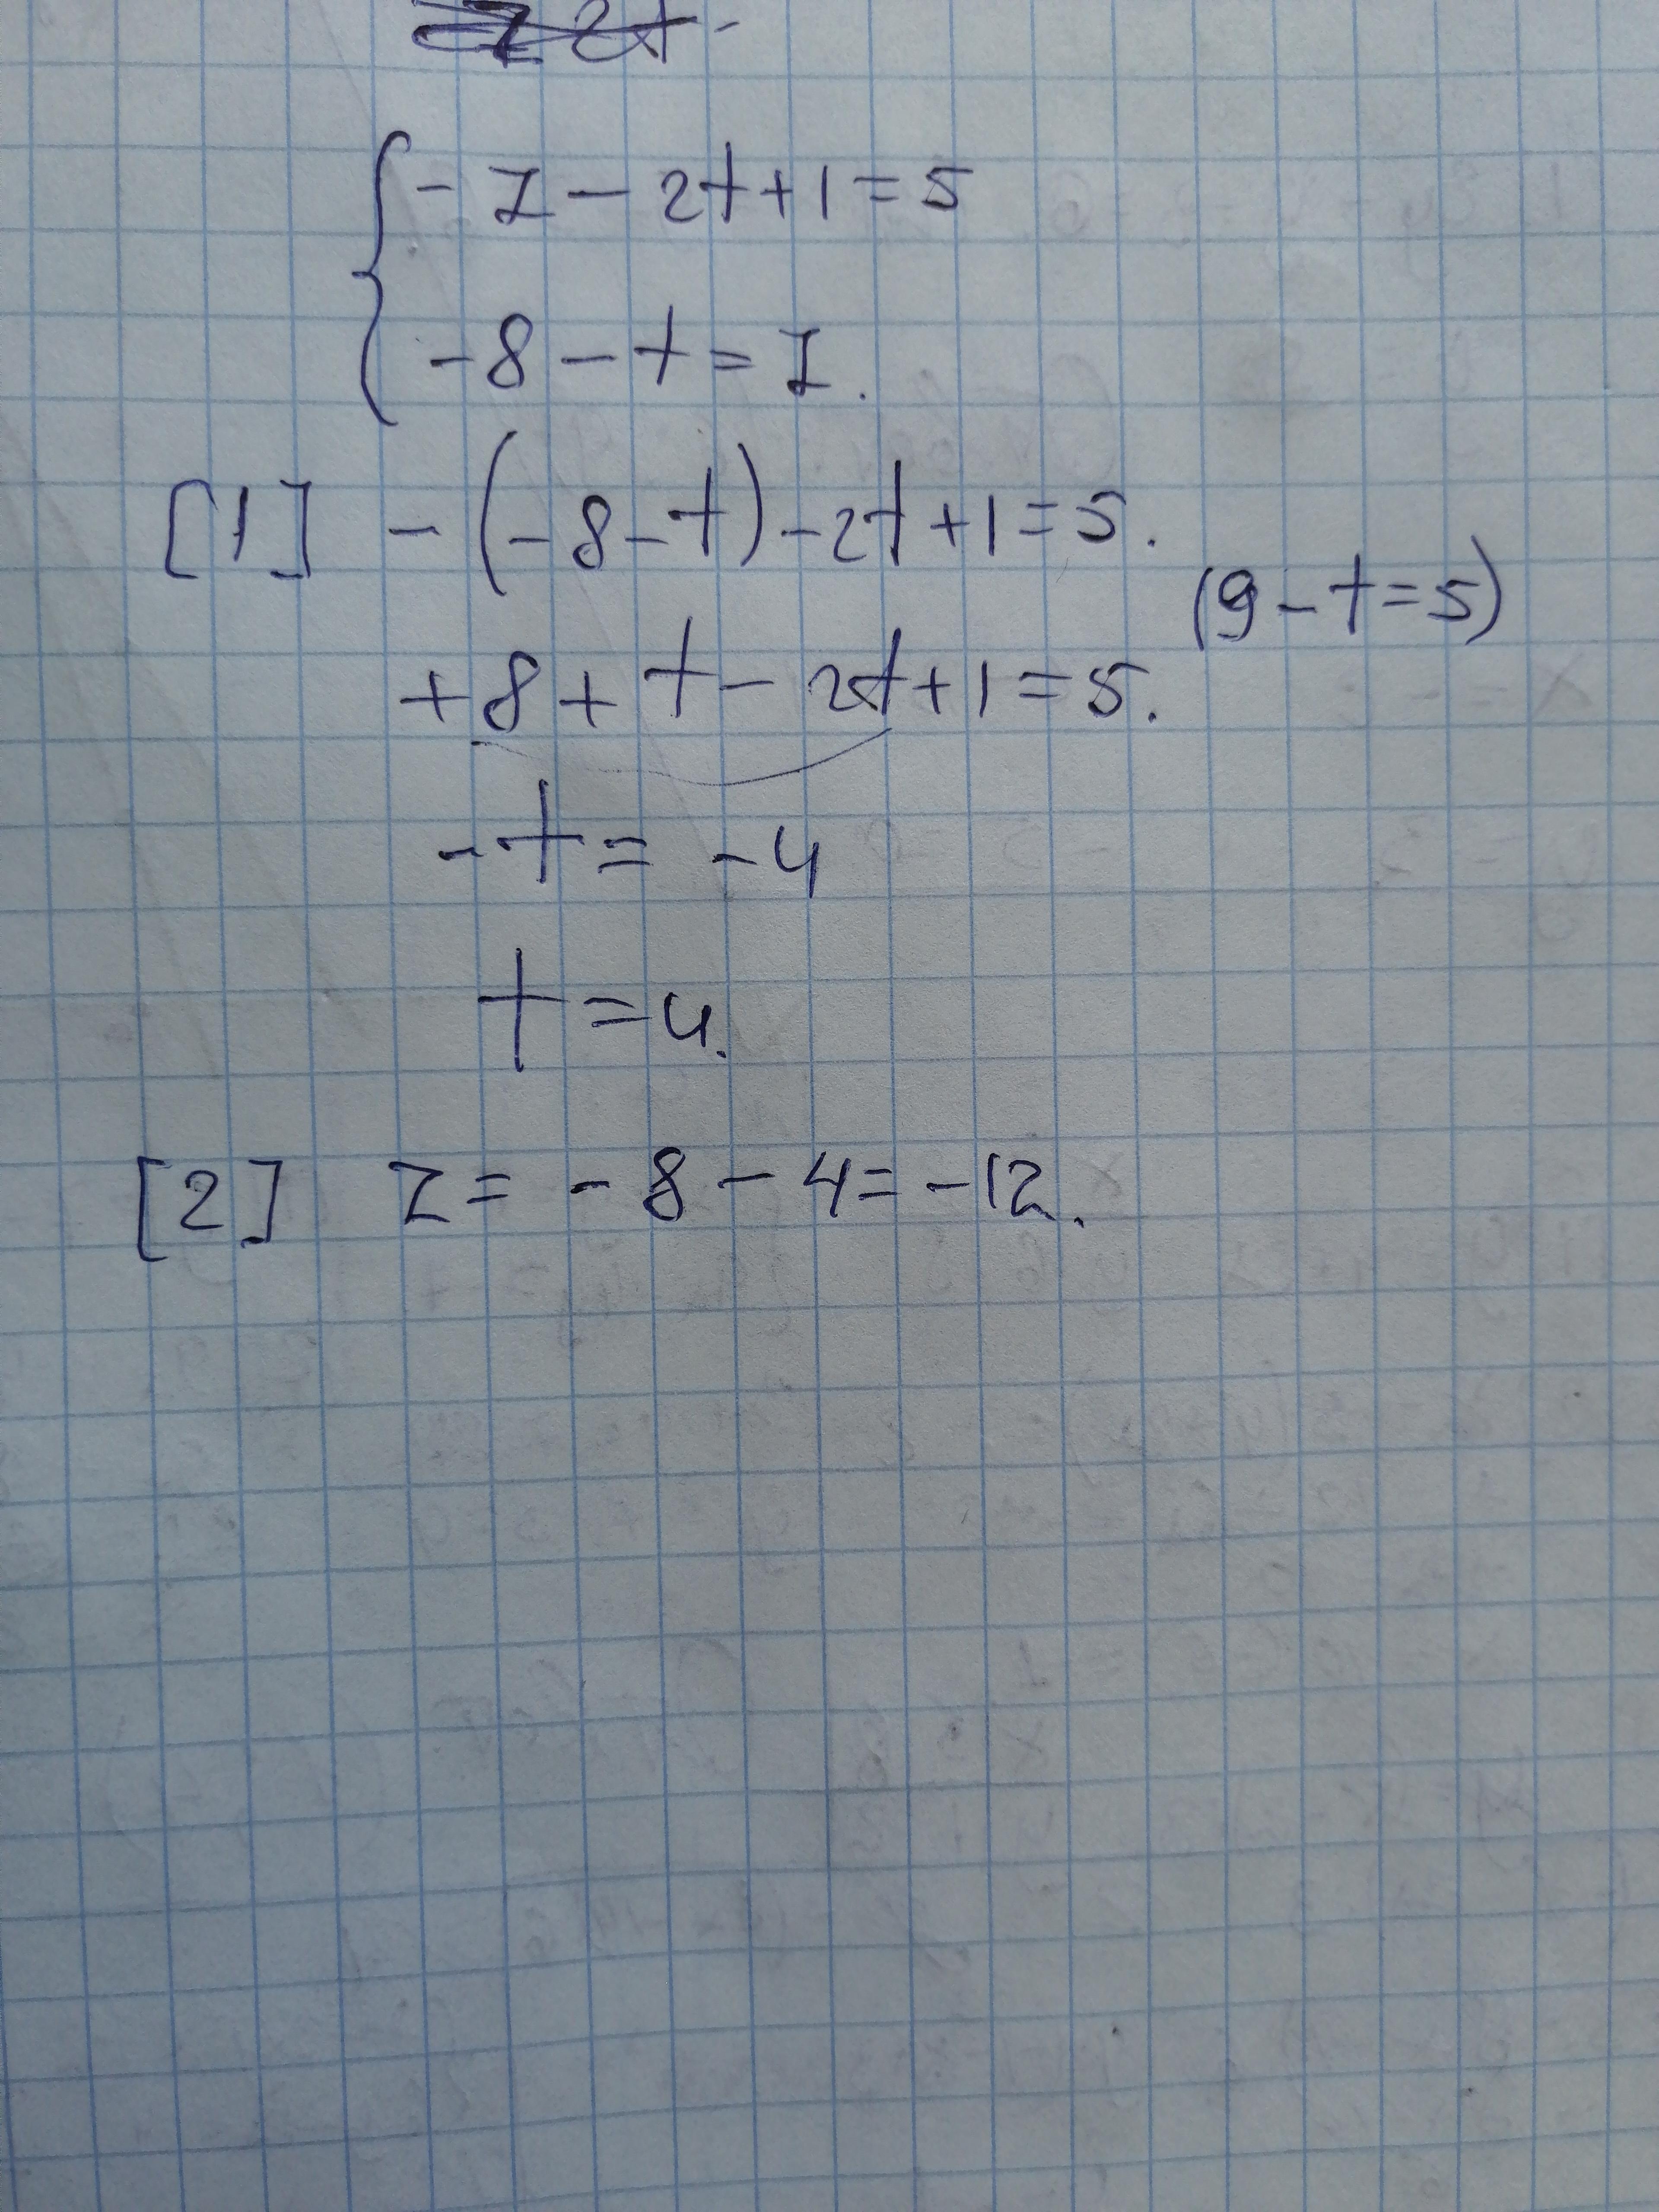 - z - 2t + 1 = 5
- 8 - t = z.
[1] - (-8 - t) - 2t + 1 = 5.
(9 - t = 5)
+ 8 + t - 2t + 1 = 5.
- t = - 4
t = 4.
[2] z = - 8 - 4 = - 12.